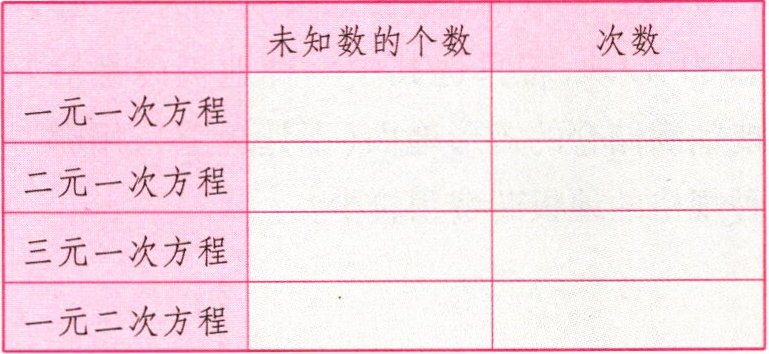 未知数的个数 次数
一元一次方程
二元一次方程
三元一次方程
一元二次方程